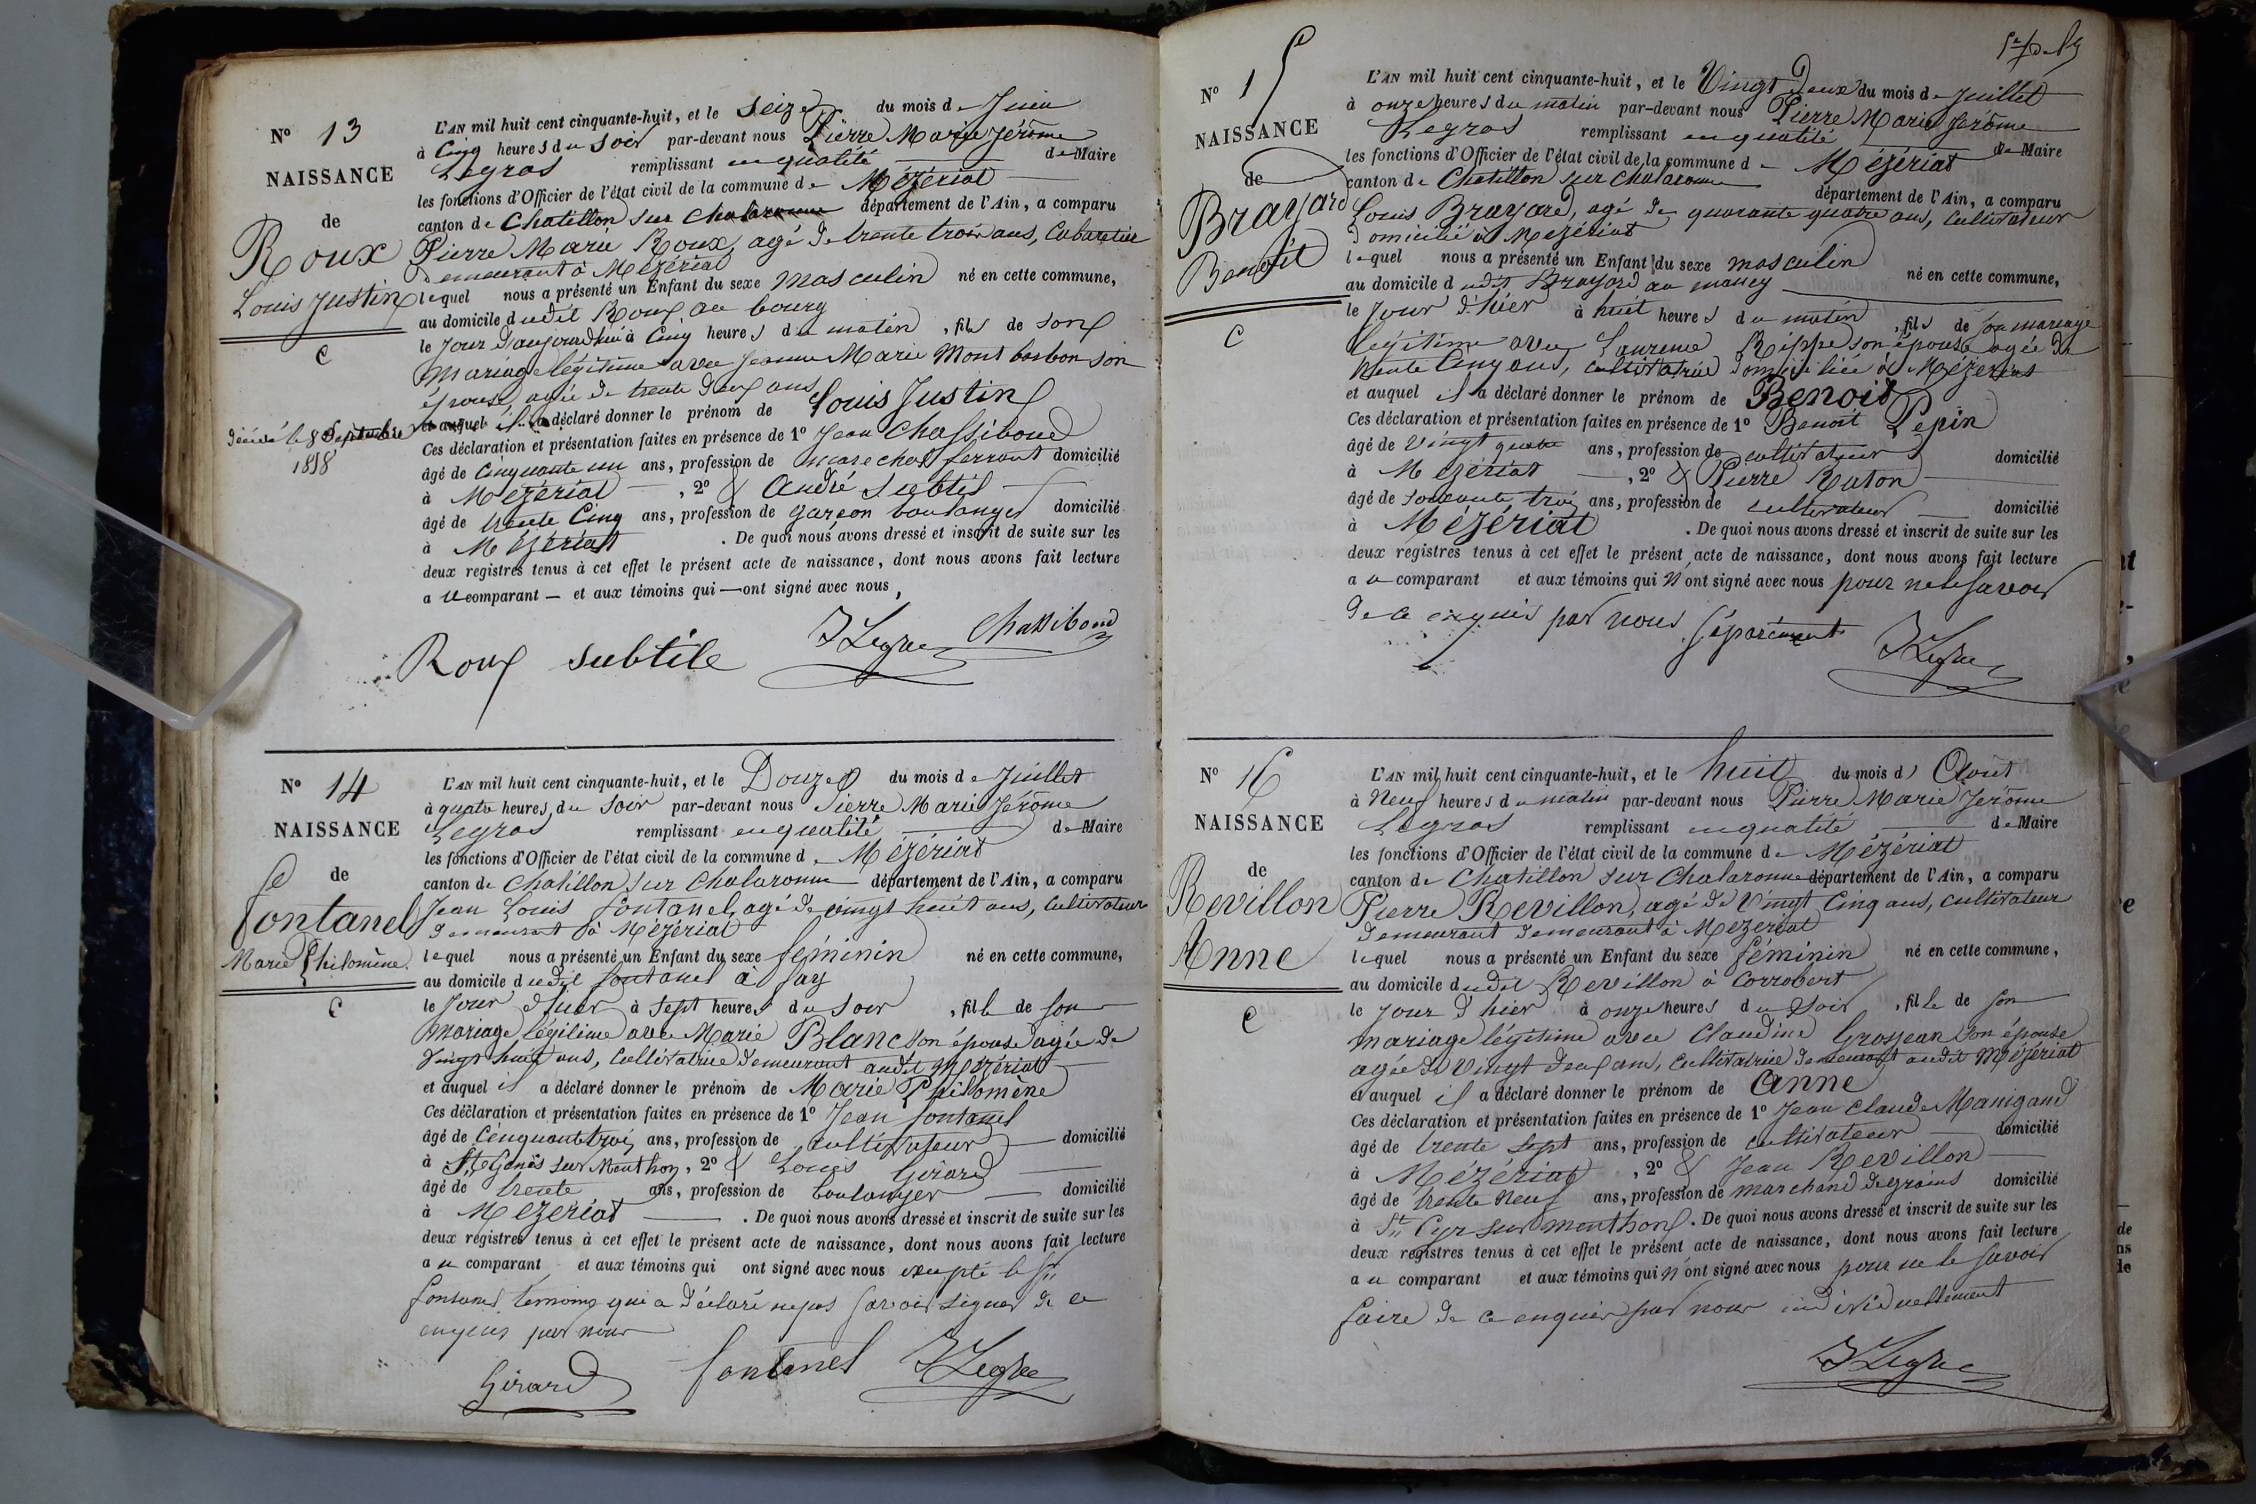 N° 13
NAISSANCE
de
Roux
Louis Justin
C
décédé le 8 Septembre
1858
L'AN mil huit cent cinquante-huit, et le Seize du mois de Juin
à Cinq heures du Soir par-devant nous Pierre Marie Jérôme
Legras remplissant en qualité de Maire
les fonctions d'Officier de l'état civil de la commune de Mézériat
canton de Chatillon sur Chalaronne département de l'Ain, a comparu
Pierre Marie Roux, agé de trente trois ans, Cabaretier
demeurant à Mézériat
lequel nous a présenté un Enfant du sexe masculin né en cette commune,
au domicile dudit Roux au bourg
le jour d'aujourd'hui à Cinq heures du matin, fils de son
mariage légitime avec Jeanne Marie Montbarbon son
épouse, agée de trente deux ans
et auquel il a déclaré donner le prénom de Louis Justin
Ces déclaration et présentation faites en présence de 1° Jean Chassiboud
âgé de Cinquante un ans, profession de marechal ferrant domicilié
à Mézériat, 2° & André Subtil
âgé de trente Cinq ans, profession de garçon boulanger domicilié
à Mézériat. De quoi nous avons dressé et inscrit de suite sur les
deux registres tenus à cet effet le présent acte de naissance, dont nous avons fait lecture
a u comparant — et aux témoins qui — ont signé avec nous,
Roux subtile JLegras Chassiboud
N° 14
NAISSANCE
de
fontanel
Marie Philomène
C
L'AN mil huit cent cinquante-huit, et le Douze du mois de Juillet
à quatre heures du Soir par-devant nous Pierre Marie Jérôme
Legras remplissant en qualité de Maire
les fonctions d'Officier de l'état civil de la commune de Mézériat
canton de Chatillon sur Chalaronne département de l'Ain, a comparu
Jean Louis fontanel, agé de vingt huit ans, Cultivateur
demeurant à Mézériat
lequel nous a présenté un Enfant du sexe féminin né en cette commune,
au domicile dudit fontanel à fay
le jour d'hier à Sept heures du Soir, fille de son
mariage légitime avec Marie Blanc son épouse agée de
vingt huit ans, Cultivatrice demeurant audit Mézériat
et auquel il a déclaré donner le prénom de Marie Philomène
Ces déclaration et présentation faites en présence de 1° Jean fontanel
âgé de Cinquante trois ans, profession de cultivateur domicilié
à St Genis sur Menthon, 2° & Louis Girard
âgé de trente ans, profession de boulanger domicilié
à Mézériat. De quoi nous avons dressé et inscrit de suite sur les
deux registres tenus à cet effet le présent acte de naissance, dont nous avons fait lecture
a u comparant et aux témoins qui ont signé avec nous excepté le Sr
fontanel, témoins qui a déclaré ne pas savoir signer de ce
enquis par nous
Girard fontanel JLegras
N° 15
NAISSANCE
de
Brayard
Benoît
C
L'AN mil huit cent cinquante-huit, et le Vingt Deux du mois de Juillet
à onze heures du matin par-devant nous Pierre Marie Jérôme
Legras remplissant en qualité de Maire
les fonctions d'Officier de l'état civil de la commune de Mézériat
canton de Chatillon sur Chalaronne département de l'Ain, a comparu
Louis Brayard, agé de quarante quatre ans, Cultivateur
domicilié à Mézériat
lequel nous a présenté un Enfant du sexe masculin né en cette commune,
au domicile dudit Brayard au mancy
le jour d'hier à huit heures du matin, fils de son mariage
légitime avec Laurence Rippe son épouse agée de
trente Cinq ans, cultivatrice domiciliée à Mézériat
et auquel il a déclaré donner le prénom de Benoit
Ces déclaration et présentation faites en présence de 1° Benoit Pepin
âgé de Vingt quatre ans, profession de cultivateur domicilié
à Mézériat, 2° & Pierre Ruton
âgé de soixante trois ans, profession de cultivateur domicilié
à Mézériat. De quoi nous avons dressé et inscrit de suite sur les
deux registres tenus à cet effet le présent acte de naissance, dont nous avons fait lecture
a u comparant et aux témoins qui n'ont signé avec nous pour ne le savoir
de ce enquis par nous séparément
JLegras
N° 16
NAISSANCE
de
Revillon
Anne
C
L'AN mil huit cent cinquante-huit, et le huit du mois d'Août
à Neuf heures du matin par-devant nous Pierre Marie Jérôme
Legras remplissant en qualité de Maire
les fonctions d'Officier de l'état civil de la commune de Mézériat
canton de Chatillon sur Chalaronne département de l'Ain, a comparu
Pierre Revillon, agé de Vingt Cinq ans, cultivateur
demeurant demeurant à Mézériat
lequel nous a présenté un Enfant du sexe féminin né en cette commune,
au domicile dudit Revillon à Corrobert
le jour d'hier à onze heures du Soir, fille de son
mariage légitime avec Claudine Grosjean son épouse
agée de Vingt deux ans, cultivatrice demeurant audit Mézériat
et auquel il a déclaré donner le prénom de Anne
Ces déclaration et présentation faites en présence de 1° Jean Claude Manigand
âgé de trente sept ans, profession de cultivateur domicilié
à Mézériat, 2° & Jean Revillon
âgé de trente Neuf ans, profession de marchand de grains domicilié
à St Cyr sur menthon. De quoi nous avons dressé et inscrit de suite sur les
deux registres tenus à cet effet le présent acte de naissance, dont nous avons fait lecture
a u comparant et aux témoins qui n'ont signé avec nous pour ne le savoir
faire de ce enquis par nous individuellement
JLegras